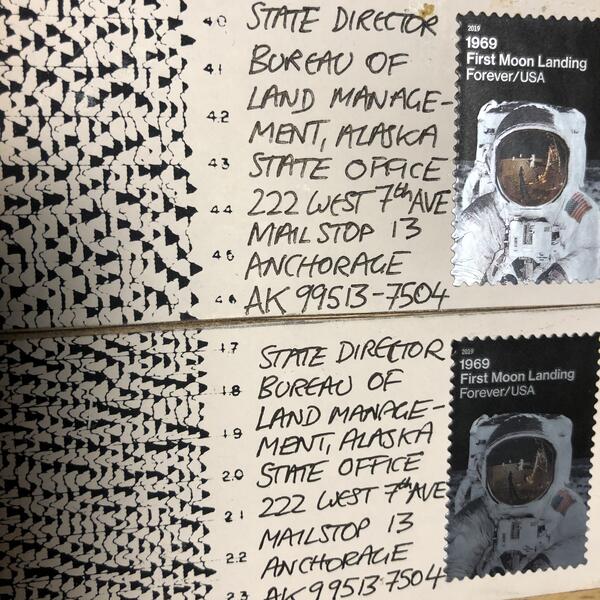 40
STATE DIRECTOR
41
BUREAU OF
LAND MANAGE-
42
MENT, ALASKA
43
STATE OFFICE
44
222 WEST 7th AVE
MAIL STOP 13
45
ANCHORAGE
46
AK 99513-7504
2019
1969
First Moon Landing
Forever/USA
17
STATE DIRECTOR
18
BUREAU OF
LAND MANAGE-
19
MENT, ALASKA
20
STATE OFFICE
21
222 WEST 7th AVE
MAILSTOP 13
22
ANCHORAGE
23
AK 99513-7504
2019
1969
First Moon Landing
Forever/USA